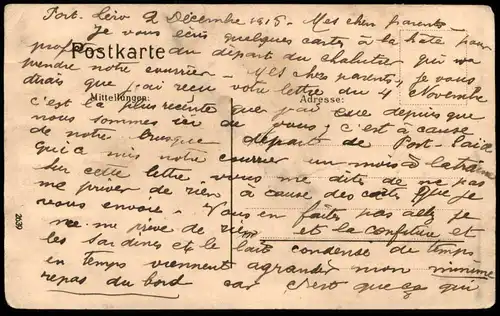 Port. Léro 2 Décembre 1915 - Mes chers parents -
je vous écris quelques cartes à la hâte pour
profiter du départ du chalutier qui va
Postkarte
prendre notre courrier - Mes chers parents, je vous
dirais que j'ai reçu votre lettre du 4 Novembre
Mitteilungen: Adresse:
c'est la plus récente que j'ai eue depuis que
nous sommes ici de vous; c'est à cause
de notre brusque départ de Port-Saïd
qui a mis notre courrier un mois à la traîne
Sur cette lettre vous me dites de ne pas
me priver de rien à cause des cartes que je
vous envoie - Vous en faites pas allez je
ne me prive de rien et la confiture et
les sardines et le lait condensé de temps
en temps viennent agrandir mon minime
repas du bord car c'est que ça qui
2639